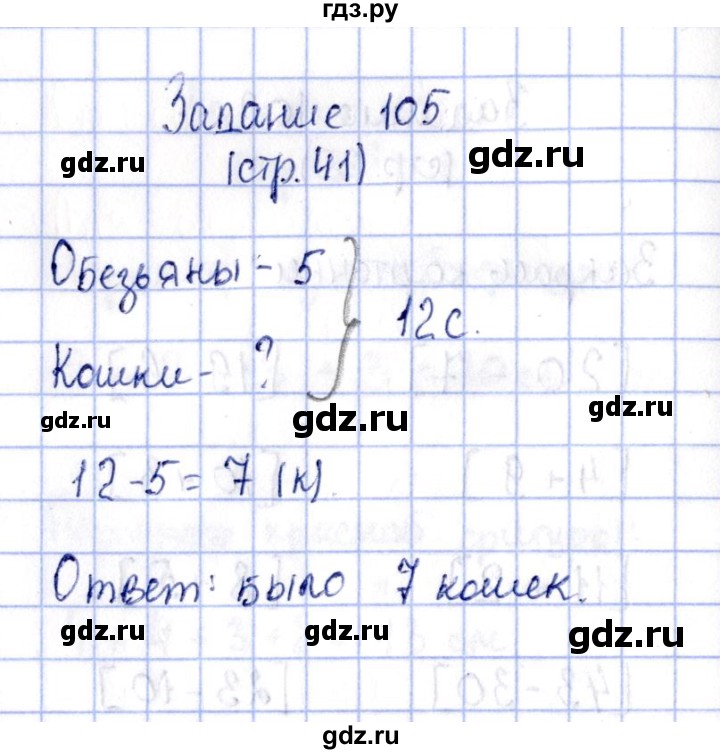 гдз.ру
Задание 105
gdz.ru
(стр. 41)
gdz.ru
Обезьяны - 5
12 с.
Кошки - ?
gdz.ru
gdz.ru
gdz.ru
12-5=7 (к).
Ответ: было 7 кошек.
gdz.ru
gdz.ru
gdz.ru
gdz.ru